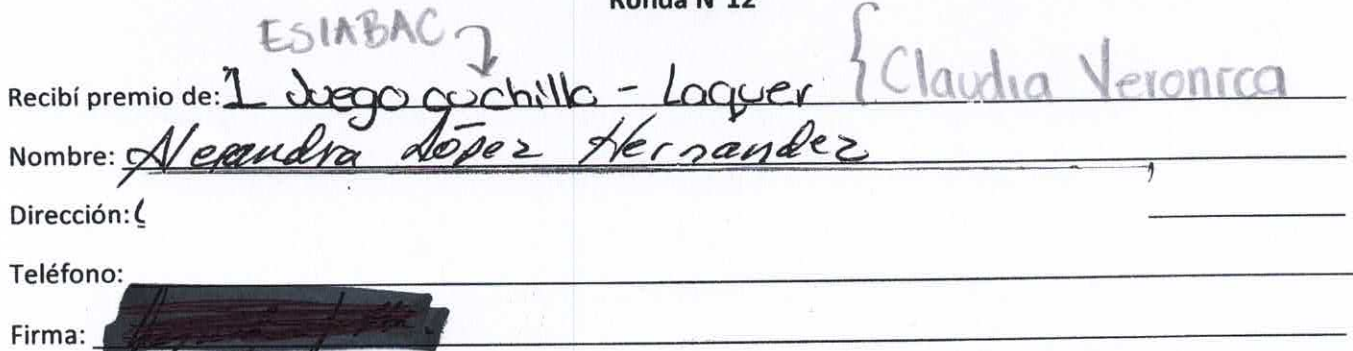 Ronda N°12
ESIABAC
Recibí premio de: 1 Juego cuchillo - Laquer { Claudia Veronica
Nombre: Alejandra López Hernandez
Dirección:
Teléfono:
Firma: